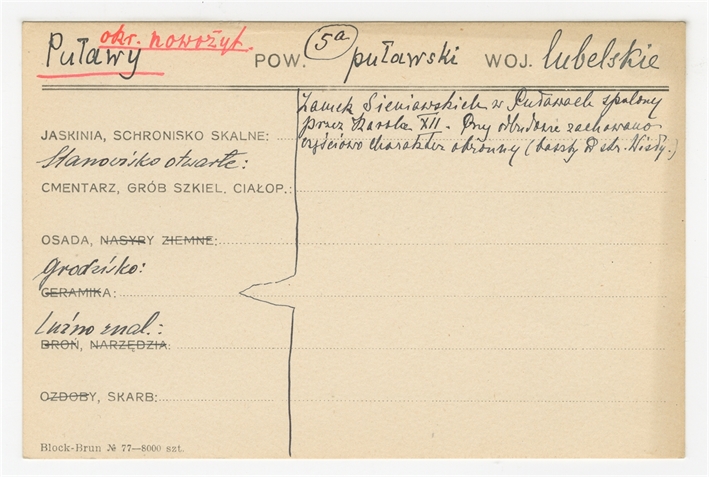 Puławy okr. nowożyt. POW. 5a puławski WOJ. lubelskie
Zamek Sieniawskich w Puławach spalony
przez Karola XII. Przy odbudowie zachowano
częściowo charakter obronny (baszty od str. Wisły.)
JASKINIA, SCHRONISKO SKALNE:
Stanowisko otwarte:
CMENTARZ, GRÓB SZKIEL. CIAŁOP.:
OSADA, NASYPY ZIEMNE:
Grodzisko:
CERAMIKA:
Luźno znal.:
BROŃ, NARZĘDZIA:
OZDOBY, SKARB:
Block-Brun № 77—8000 szt.